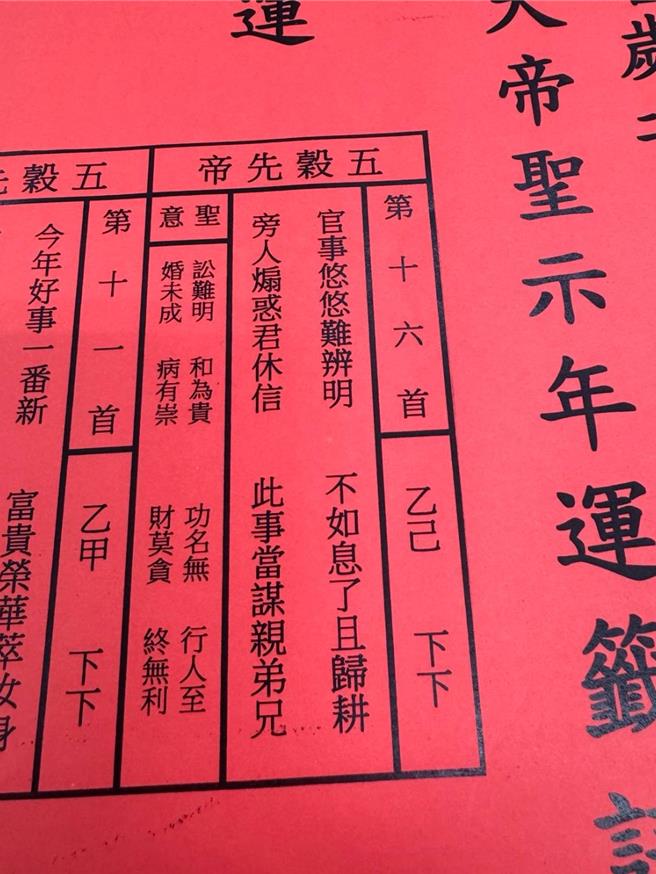 歲
大帝聖示年運籤
運
五穀先帝
第十六首
乙己 下下
官事悠悠難辨明 不如息了且歸耕
旁人煽惑君休信 此事當謀親弟兄
聖意
訟難明 和為貴 功名無 行人至
婚未成 病有崇 財莫貪 終無利
五穀先
第十一首
乙甲 下下
今年好事一番新 富貴榮華萃汝身